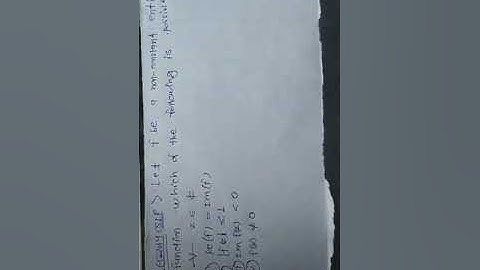 > Let f be a non-constant enti
function which of the following is possible
∀ z ∈ ₵
Re(f) = Im(f)
|f(z)| < 1
Im f(z) < 0
f(z) ≠ 0